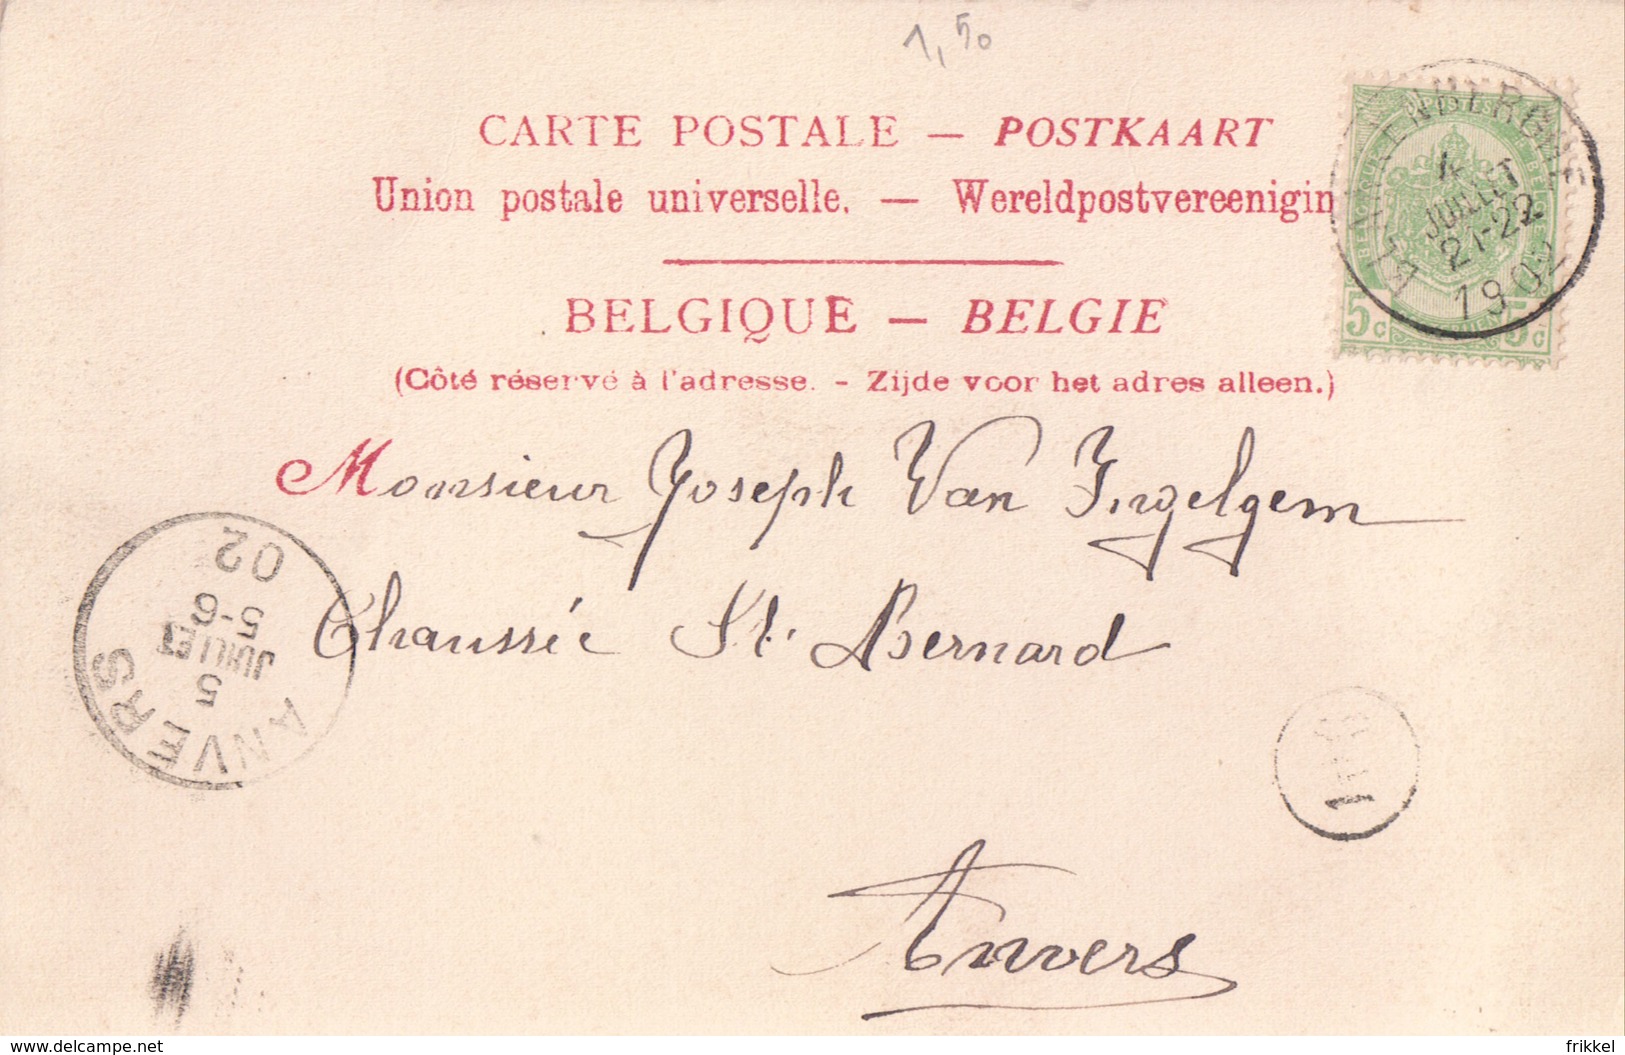 1,50
CARTE POSTALE — POSTKAART
Union postale universelle. — Wereldpostvereenigin
BELGIQUE — BELGIE
(Côté réservé à l'adresse. - Zijde voor het adres alleen.)
BLANKENBERGHE
4
JUILLET
21-22
1902
5c 5c
Monsieur Joseph Van Ingelgem
Chaussée St. Bernard
Anvers
ANVERS
5
JUILLET
5-6
02
1
www.delcampe.net
frikkel